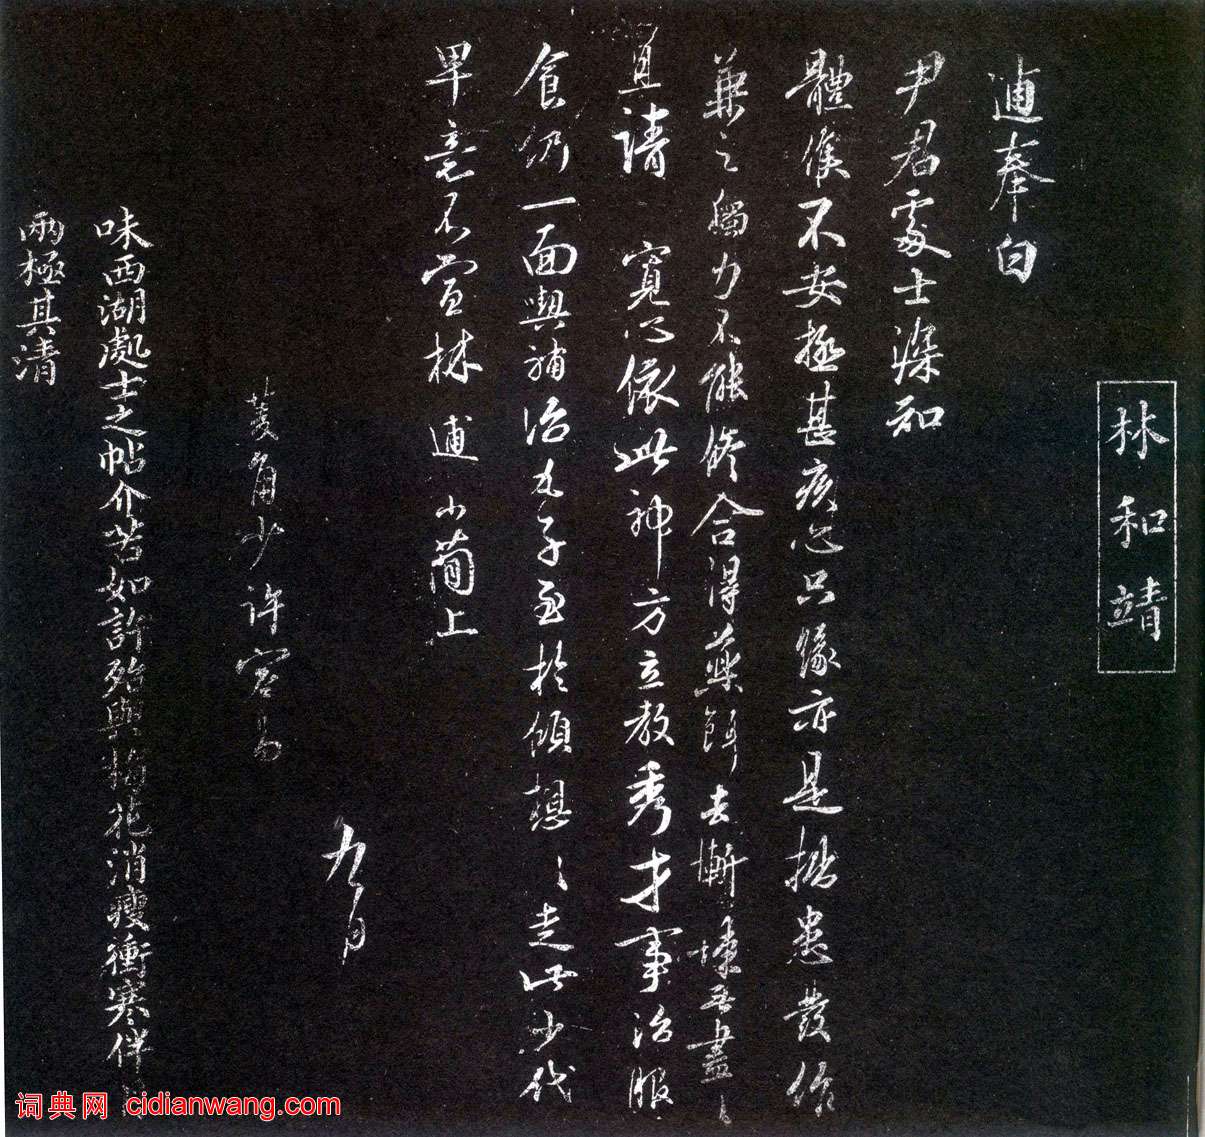 林和靖
逋奉白
尹君處士深知
體候不安極甚疾心只緣亦是拙患發作
兼之觸力不能修合得藥餌去慚悚無盡〻
且請寬心依此神方立教秀才事治服
食仍一面與補治丸子至於傾想〻走此少代
早意不宣林逋小簡上
九月
菱角少許容易
味西湖處士之帖介苦如許殆與梅花消瘦衝寒伴
兩極其清
词典网 cidianwang.com